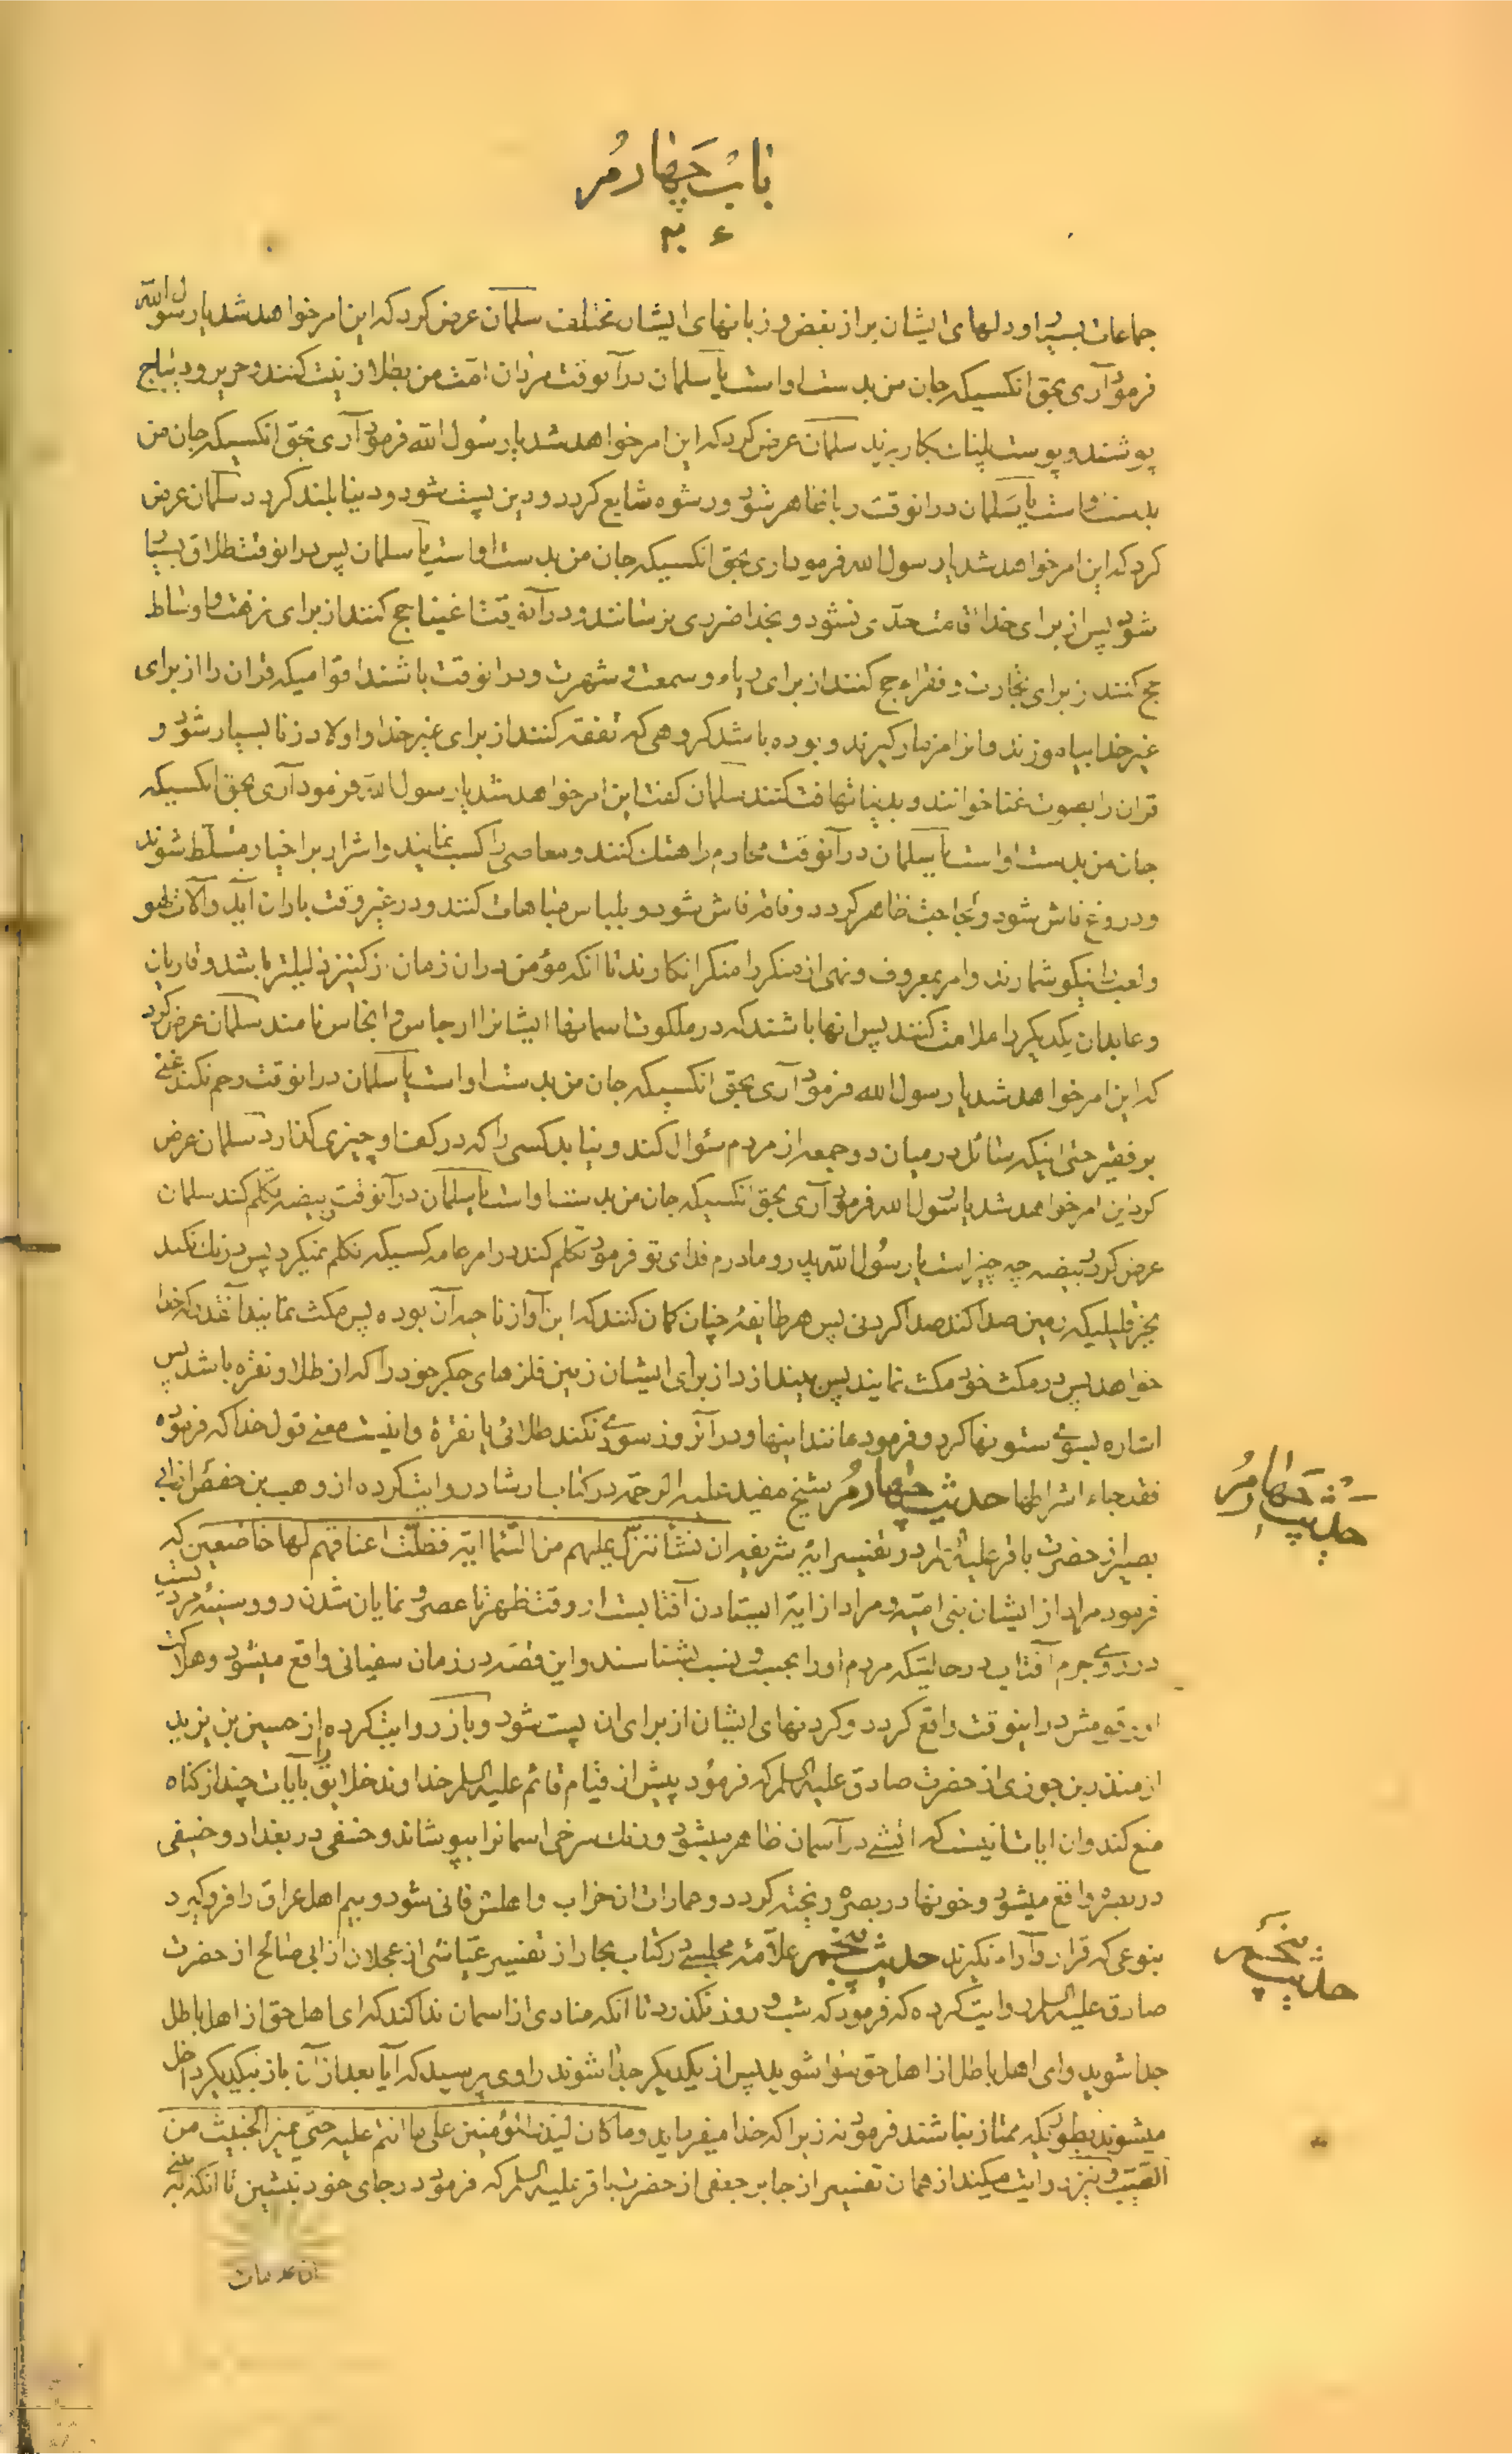 باب چهارم
جماعات بسیار و دلهای ایشان پر از بغض و زبانهای ایشان مختلف سلمان عرض کرد که این امر خواهد شد یا رسول الله
فرمود آری بحق انکسیکه جان من بدست او است یا سلمان در آنوقت مردان امت من بطلا زینت کنند و حریر و دیباج
پوشند و پوست پلنک بکار برند سلمان عرض کرد که این امر خواهد شد یا رسول الله فرمود آری بحق انکسیکه جان من
بدست او است یا سلمان در انوقت ربا ظاهر شود و رشوه شایع کردد و دین پست شود و دینا بلند کردد سلمان عرض
کرد که این امر خواهد شد یا رسول الله فرمود اری بحق انکسیکه جان من بدست او است یا سلمان پس در انوقت طلاق بسیار
شود پس از برای خدا اقامت حدّی نشود و بخدا ضرری نرسانند و در آنوقت اغنیا حج کنند از برای نزهت و اوساط
حج کنند از برای تجارت و فقراء حج کنند از برای ریاء و سمعت و شهرت و در انوقت باشند اقوامیکه قران را از برای
غیر خدا بیاموزند و انرا مزمار کیرند و بوده باشد کروهی که تفقه کنند از برای غیر خدا و اولاد زنا بسیار شود و
قران را بصوت غنا خوانند و بدینا تهافت کنند سلمان کفت این امر خواهد شد یا رسول الله فرمود آری بحق انکسیکه
جان من بدست او است یا سلمان در آنوقت محارم را هتک کنند و معاصی را کسب نمایند و اشرار بر اخیار مسلّط شوند
و دروغ فاش شود و لجاجت ظاهر کردد و فاقه فاش شود و بلباس مباهات کنند و در غیر وقت باران آید و آلات لهو
و لعب را نیکو شمارند و امر بمعروف و نهی از منکر را منکر انکارند تا انکه مؤمن در ان زمان از کنیز ذلیلتر باشد و قاریان
و عابدان یکدیکر را ملامت کنند پس انها باشند که در ملکوت اسمانها ایشانرا ارجاس و انجاس نامند سلمان عرض کرد
که این امر خواهد شد یا رسول الله فرمود آری بحق انکسیکه جان من بدست او است یا سلمان در انوقت رحم نکند غنی
بر فقیر حتی اینکه سائل در میان دو جمعه از مردم سئوال کند و نیابد کسی را که در کف او چیزی کذارد سلمان عرض
کرد این امر خواهد شد یا رسول الله فرمود آری بحق انکسیکه جان من بدست او است یا سلمان در آنوقت ربیضه تکلم کند سلمان
عرض کرد ربیضه چه چیز است یا رسول الله پدر و مادرم فدای تو فرمود تکلم کند در امر عامه کسیکه تکلم نمیکرد پس درنک نکند
بجز قلیلیکه زمین صدا کند صدا کردنی پس هر طایفه چنان کمان کنند که این آواز ناحیه آن بوده پس مکث نمایند آنقدر که خدا
خواهد پس در مکث خود مکث نمایند پس بیندازد از برای ایشان زمین فلزهای جکر خود را که از طلا و نقره باشد پس
اشاره بسوی ستونها کرد و فرمود مانند اینها و در آنروز سودی نکند طلائی یا نقرة و اینست معنی قول خدا که فرموده
فقد جاء اشراطها حدیث چهارم شیخ مفید علیه الرحمه در کتاب ارشاد روایت کرده از وهب بن حفص از ابی
حدیث چهارم
بصیر از حضرت باقر علیه السلام در تفسیر ایهٔ شریفه ان نشأ ننزّل علیهم من السّماء ایة فظلّت اعناقهم لها خاضعین که
فرمود مراد از ایشان بنی امیّه و مراد از ایة ایستادن آفتابست از وقت ظهر تا عصر و نمایان شدن رو و سینهٔ مردیست
در روی جرم آفتاب در حالتیکه مردم او را بحسب و نسب بشناسند و این قضیه در زمان سفیانی واقع میشود و هلاکت
او و قومش در اینوقت واقع کردد و کردنهای ایشان از برای ان پست شود و باز روایت کرده از حسین بن یزید
از منذر بن جوزی از حضرت صادق علیه السلم که فرمود پیش از قیام قائم علیه السلم خداوند خلایق را بآیات چند از کناه
منع کند و ان ایات اینست که اتشی در آسمان ظاهر میشود و رنک سرخی اسمانرا بپوشاند و خسفی در بغداد و خسفی
در بصره واقع میشود و خونها در بصره ریخته کردد و عمارات ان خراب و اهلش فانی شود و بیم اهل عراق را فرو کیرد
بنوعی که قرار و آرام نکیرند حدیث پنجم علّامهٔ مجلسی در کتاب بحار از تفسیر عیّاشی از عجلان از ابی صالح از حضرت
حدیث پنجم
صادق علیه السلم روایت کرده که فرمود که شب و روز نکذرد تا انکه منادی از اسمان ندا کند که ای اهل حق از اهل باطل
جدا شوید و ای اهل باطل از اهل حق سوا شوید پس از یکدیکر جدا شوند راوی پرسید که آیا بعد از آن باز بیکدیکر داخل
میشوند بطوریکه ممتاز نباشند فرمود نه زیرا که خدا میفرماید و ما کان لیذر المؤمنین علی ما انتم علیه حتّی یمیز الخبیث من
الطیّب و نیز روایت میکند از همان تفسیر از جابر جعفی از حضرت باقر علیه السلم که فرمود در جای خود بنشین تا انکه به بینی